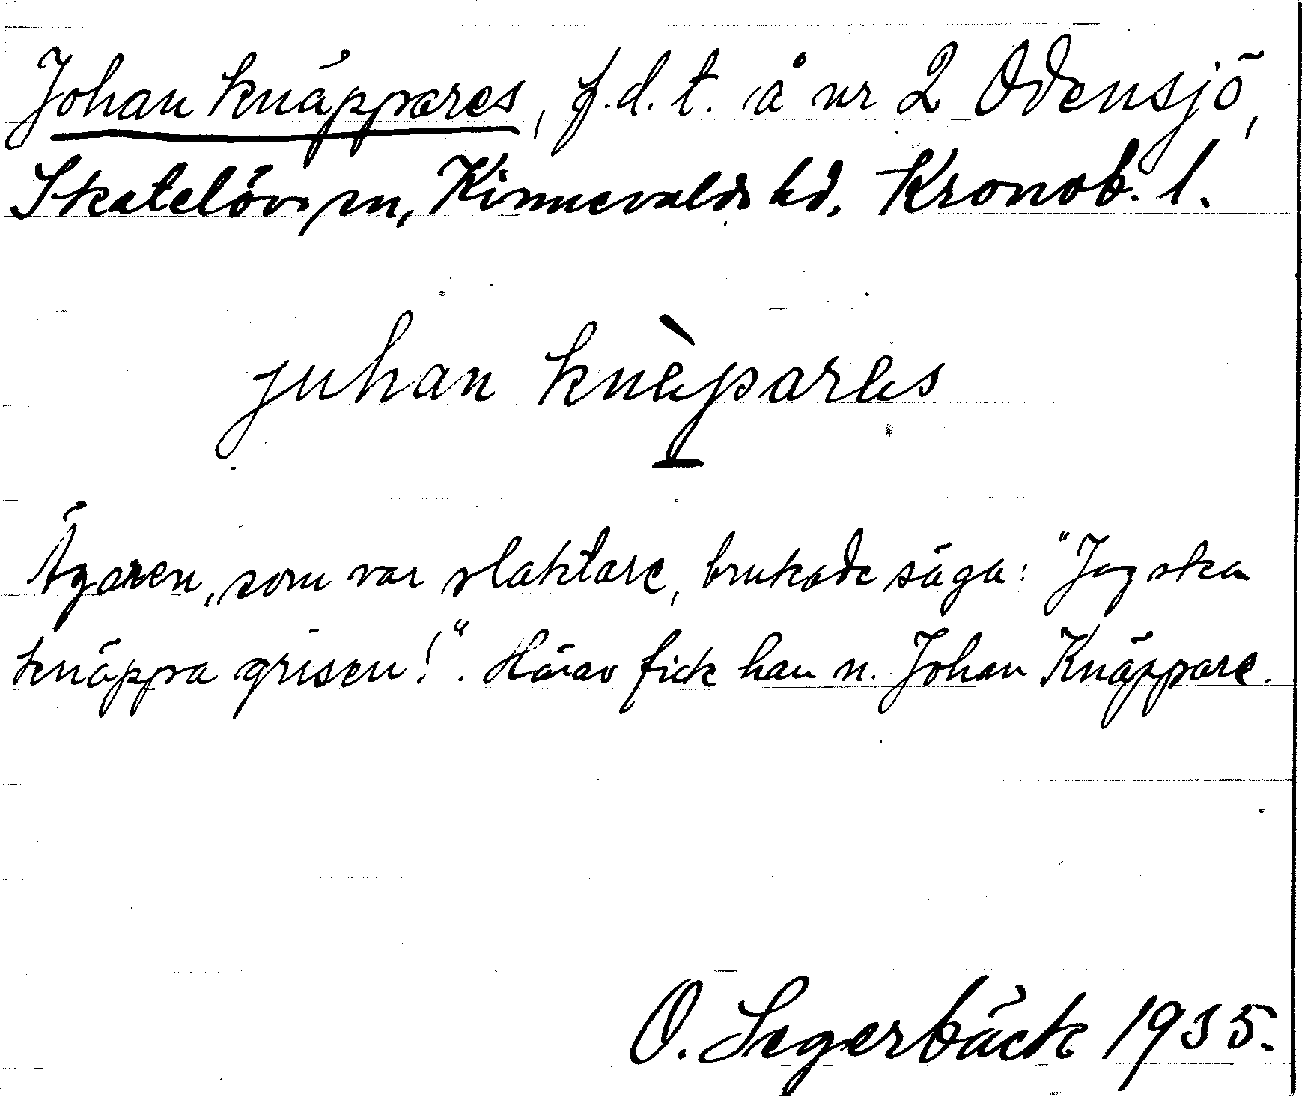 Johan Knäppares, f.d.t. å nr 2 Odensjö,
Skatelövs sn, Kinnevalds hd. Kronob. l.
juhan knὲpares
Ägaren, som var slaktare, brukade säga: "Jag ska
knäppa grisen!". Härav fick han n. Johan Knäppare.
O. Segerbäck 1935.